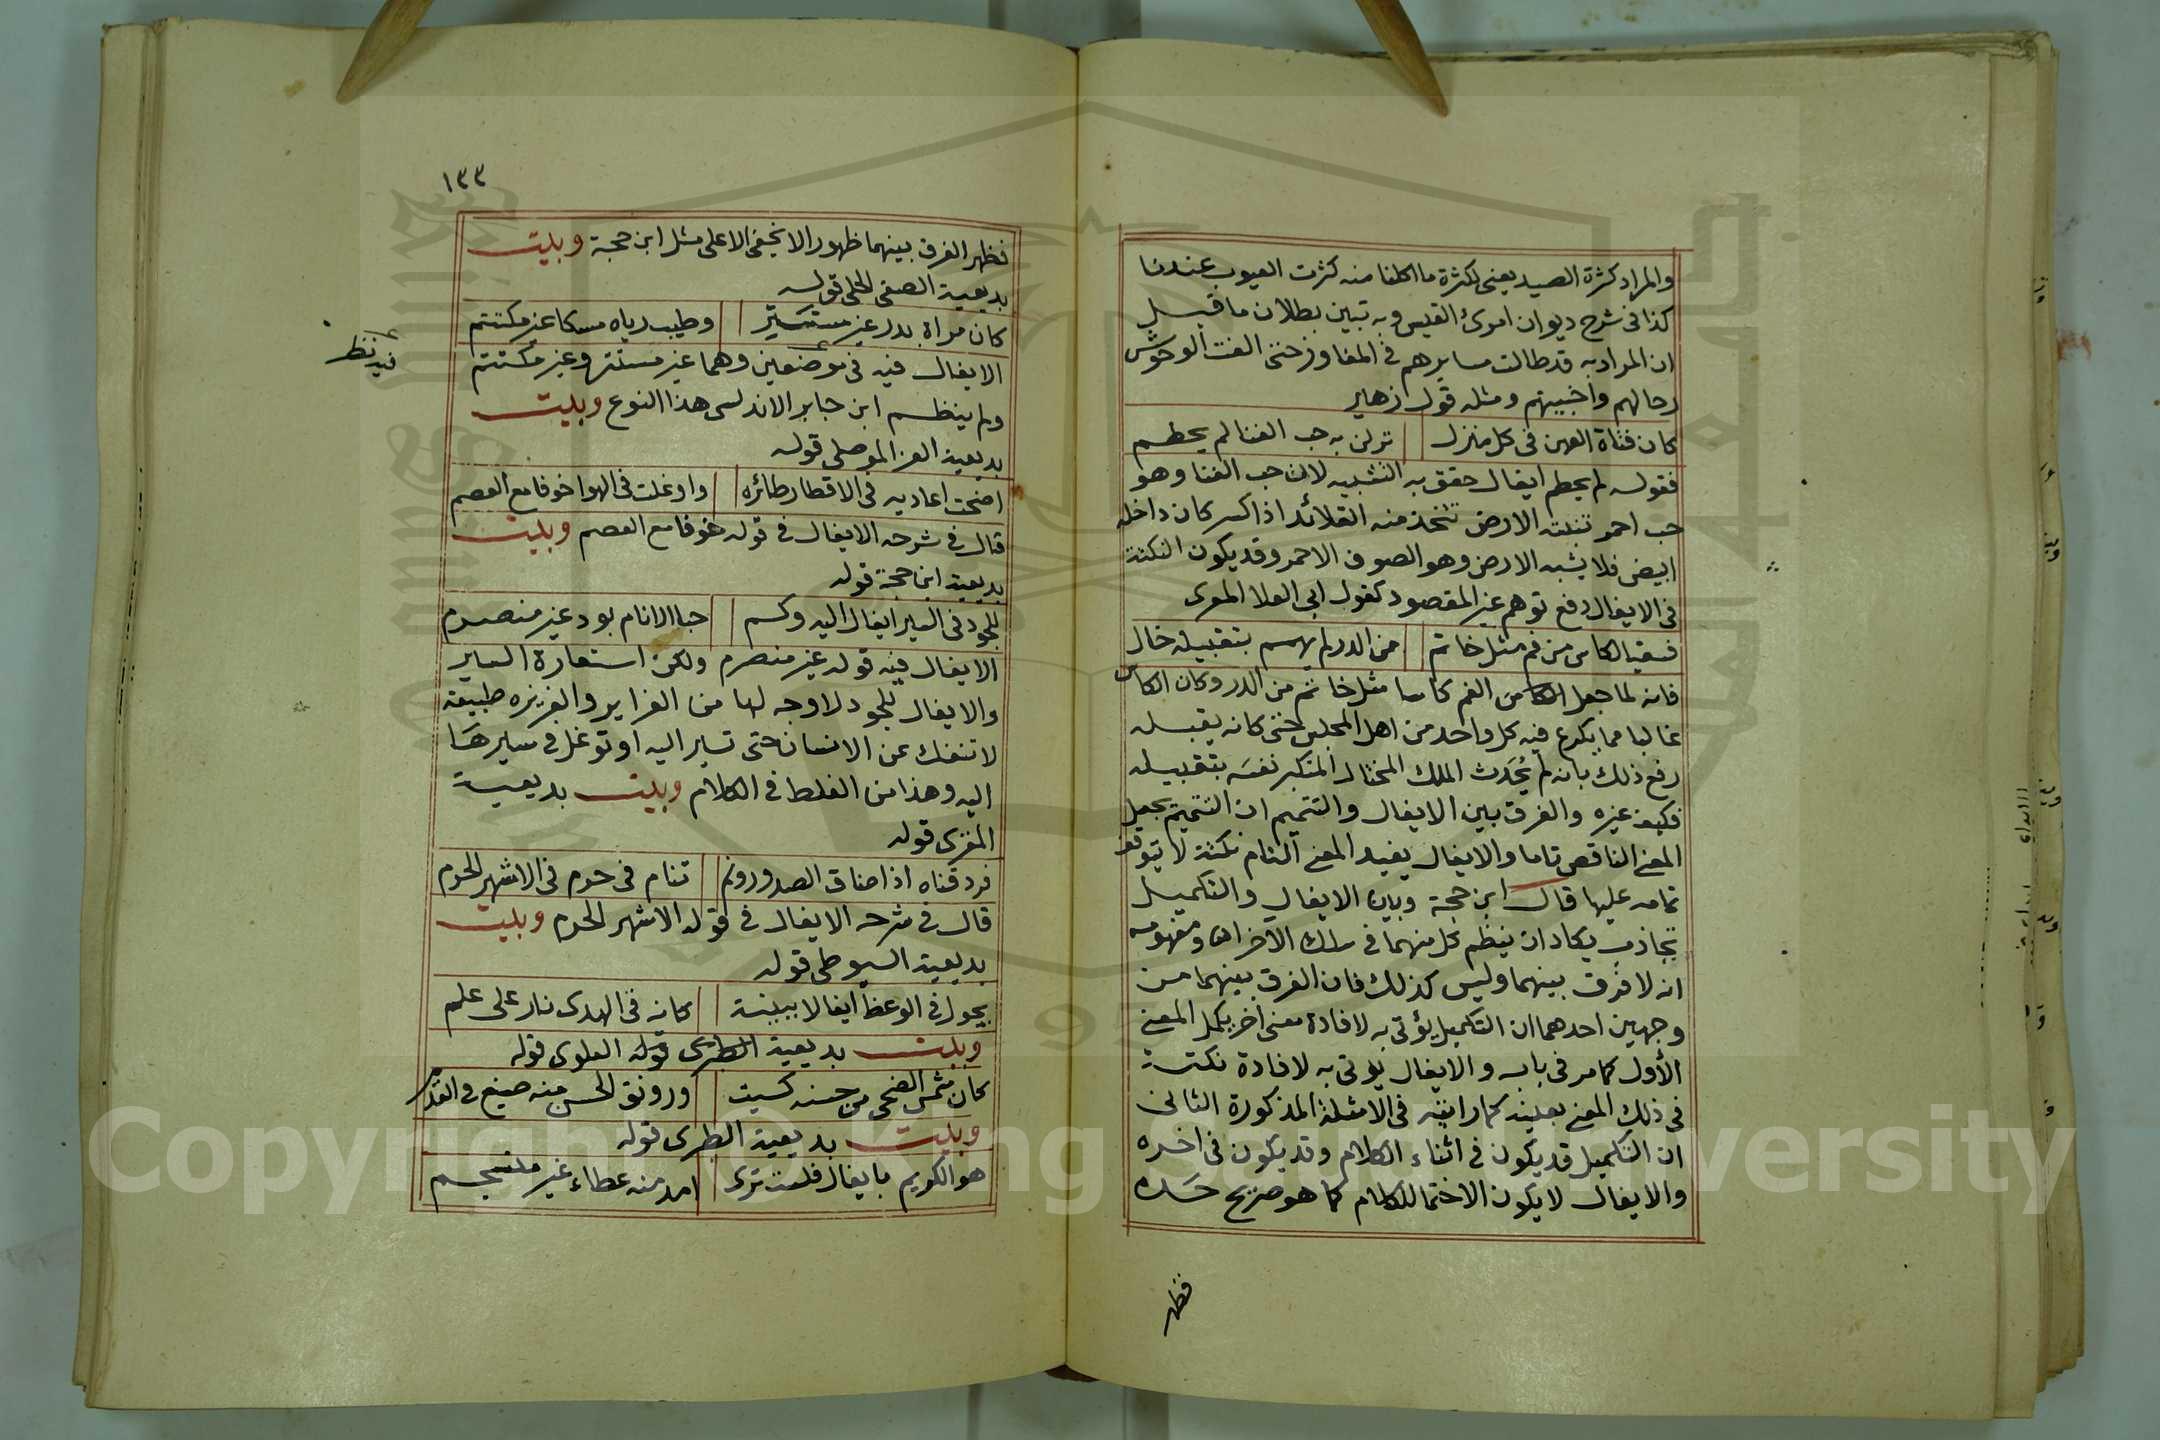 والمراد كثرة الصيد يعنى لكثرة ما اكلنا منه كثرت العيوب عندنا
كذا فى شرح ديوان امرئ القيس وبه تبين بطلان ما قيل
ان المراد به قد طالت مسايرهم فى المفاوز حتى الفت الوحوش
رحالهم واخبيتهم ومثله قول زهير
كان فتاة العهن فى كل منزل نزلن به حب الفنا لم يحطم
فقوله لم يحطم ايغال حقق به التشبيه لان حب الفنا وهو
حب احمر تنبته الارض تتخذ منه القلائد اذا كسر كان داخله
ابيض فلا يشبه الارض وهو الصوف الاحمر وقد يكون النكتة
فى الايغال دفع توهم غير المقصود كقول ابى العلا المعرى
فسقيا لكاس من فم مثل خاتم من الدر لم يهمم بتقبيله خال
فانه لما جعل الفم كاسا مثل خاتم من الدر وكان الكاس
غالبا مما يكرع فيه كل واحد من اهل المجلس حتى كانه يقبله
رفع ذلك بانه لم يُحَدث الملك المختال المتكبر نفسَه بتقبيله
فكيف غيره والفرق بين الايغال والتتميم ان التتميم يجعل
المعنى الناقص تاما والايغال يفيد المعنى التام نكتة لا يتوقف
تمامه عليها قال ابن حجة وبين الايغال والتكميل
تجاذب يكاد ان ينظم كل منهما فى سلك الآخر اه ومفهومه
انه لا فرق بينهما وليس كذلك فان الفرق بينهما من
وجهين احدهما ان التكميل يؤتى به لافادة معنى اخر يكمل المعنى
الأول كما مر فى بابه والايغال يؤتى به لافادة نكتة
فى ذلك المعنى بعينه كما رايته فى الامثلة المذكورة الثانى
ان التكميل قد يكون فى اثناء الكلام وقد يكون فى اخره
والايغال لا يكون الا ختما للكلام كما هو صريح حَده
فظهر
١٣٣
فظهر الفرق بينهما ظهورا لا يخفى الا على مثل ابن حجة وبليت
بديعية الصفى الحلى قوله
كان مراة بدر غير مستتر وطيب رياه مسكا غير مكتتم
الايغال فيه فى موضعين وهما غير مستتر وغير مكتتم
ولم ينظم ابن جابر الاندلسى هذا النوع وبليت
بديعية العز الموصلى قوله
اضحت اعاديه فى الاقطار طائره واوغلت فى الهوا خوفا مع العصم
قال فى شرحه الايغال فى قوله خوفا مع العصم وبليت
بديعية ابن حجة قوله
للجود فى السير ايغال اليه وكم حبا الانام بود غير منصرم
الايغال فيه قوله غير منصرم ولكن استعارة السير
والايغال للجود لا وجه لها من الغزاير والغريزه طبيعة
لا تنفك عن الانسان حتى تسير اليه او توغل فى سيرهَا
اليه وهذا من الغلط فى الكلام وبليت بديعية
المقرى قوله
فرد قناه اذا ضاق الصدور ونم تنام فى حرم فى الاشهر الحرم
قال فى شرحه الايغال فى قوله الاشهر الحرم وبليت
بديعية السيوطى قوله
يجول فى الوعظ ايغالا ببينة كانه فى الهدى نار على علم
وبليت بديعية العلوى قوله
كان شمس الضحى من حسنه كسيت ورونق الحسن منه صيغ فى القدم
وبليت بديعية الطبرى قوله
هو الكريم بايغال فلست ترى امد منه عطاء غير منسجم
Copyright © King Saud University
1957